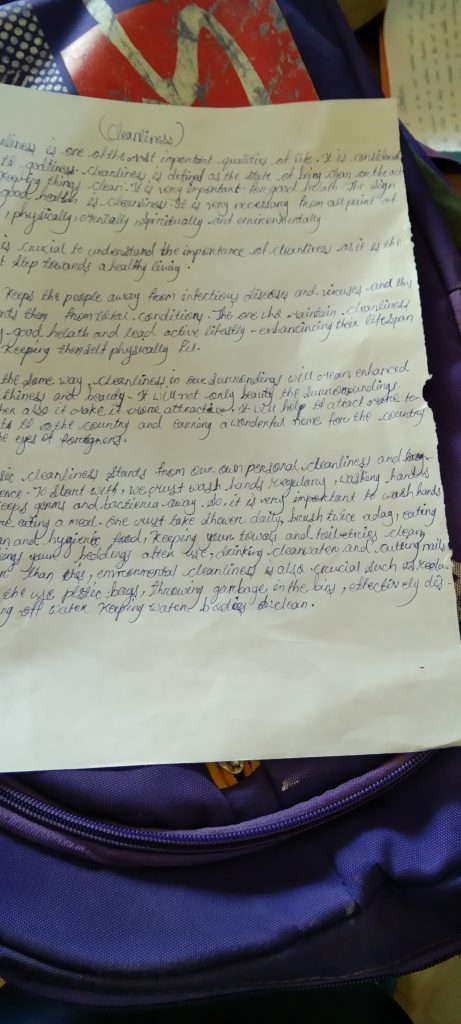 (Cleanliness)
nliness is one of the most important qualities of life. It is considered
to godliness. cleanliness is defined as the state of being clean or the act
keeping things clean. It is very important for good helath. The sign
good health, is cleanliness. It is very necessary from all point of
, physically, mentally, spiritually and environmentally.
is crucial to understand the importance of cleanliness as it is the
t step towards a healthy living.
keeps the people away from infectious diseases and viruses and thy
nts them from total conditions. The one who maintain cleanliness
good helath and lead active lifestly - enhancincing their lifespan
keeping themself physically fit.
the same way, cleanliness in our surrondings will mean enhanced
thiness and beauty. It will not only beauty the surroundings.
hen also it make it more attractive. It will help to attact more to-
ts to the country and earning a wonderful name for the country
he eyes of foreigners.
sic cleanliness stants from our own personal cleanliness and
ence. To start with, we must wash hands regulary, washing hands
keeps germs and bacteria away. So, it is very important to wash hands
eating a meal. One must take shower daily, brush twice a day, eating
an and hygienic food, keeping your towels and toiletries clean,
your beddings after use, drinking cleanwater and cutting nails
than this, environmental cleanliness is also crucial such as redu-
the use plastic bags, throwing garbage in the bins, effectively dis-
ng off water keeping water bodies clean.